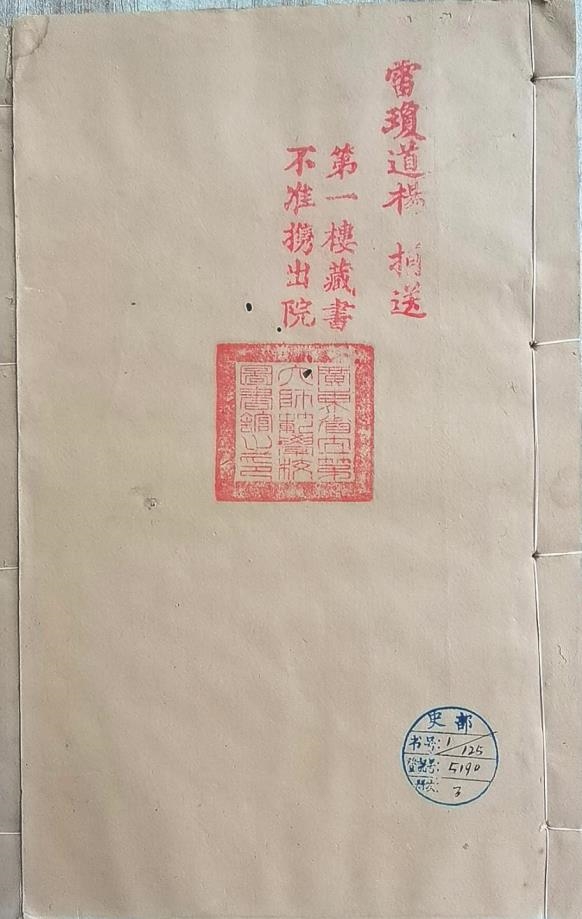 雷瓊道楊 捐送
第一樓藏書
不准攜出院
廣東省立第
六師範學校
圖書館之印
史部
书号:1/125
登記号:5190
3